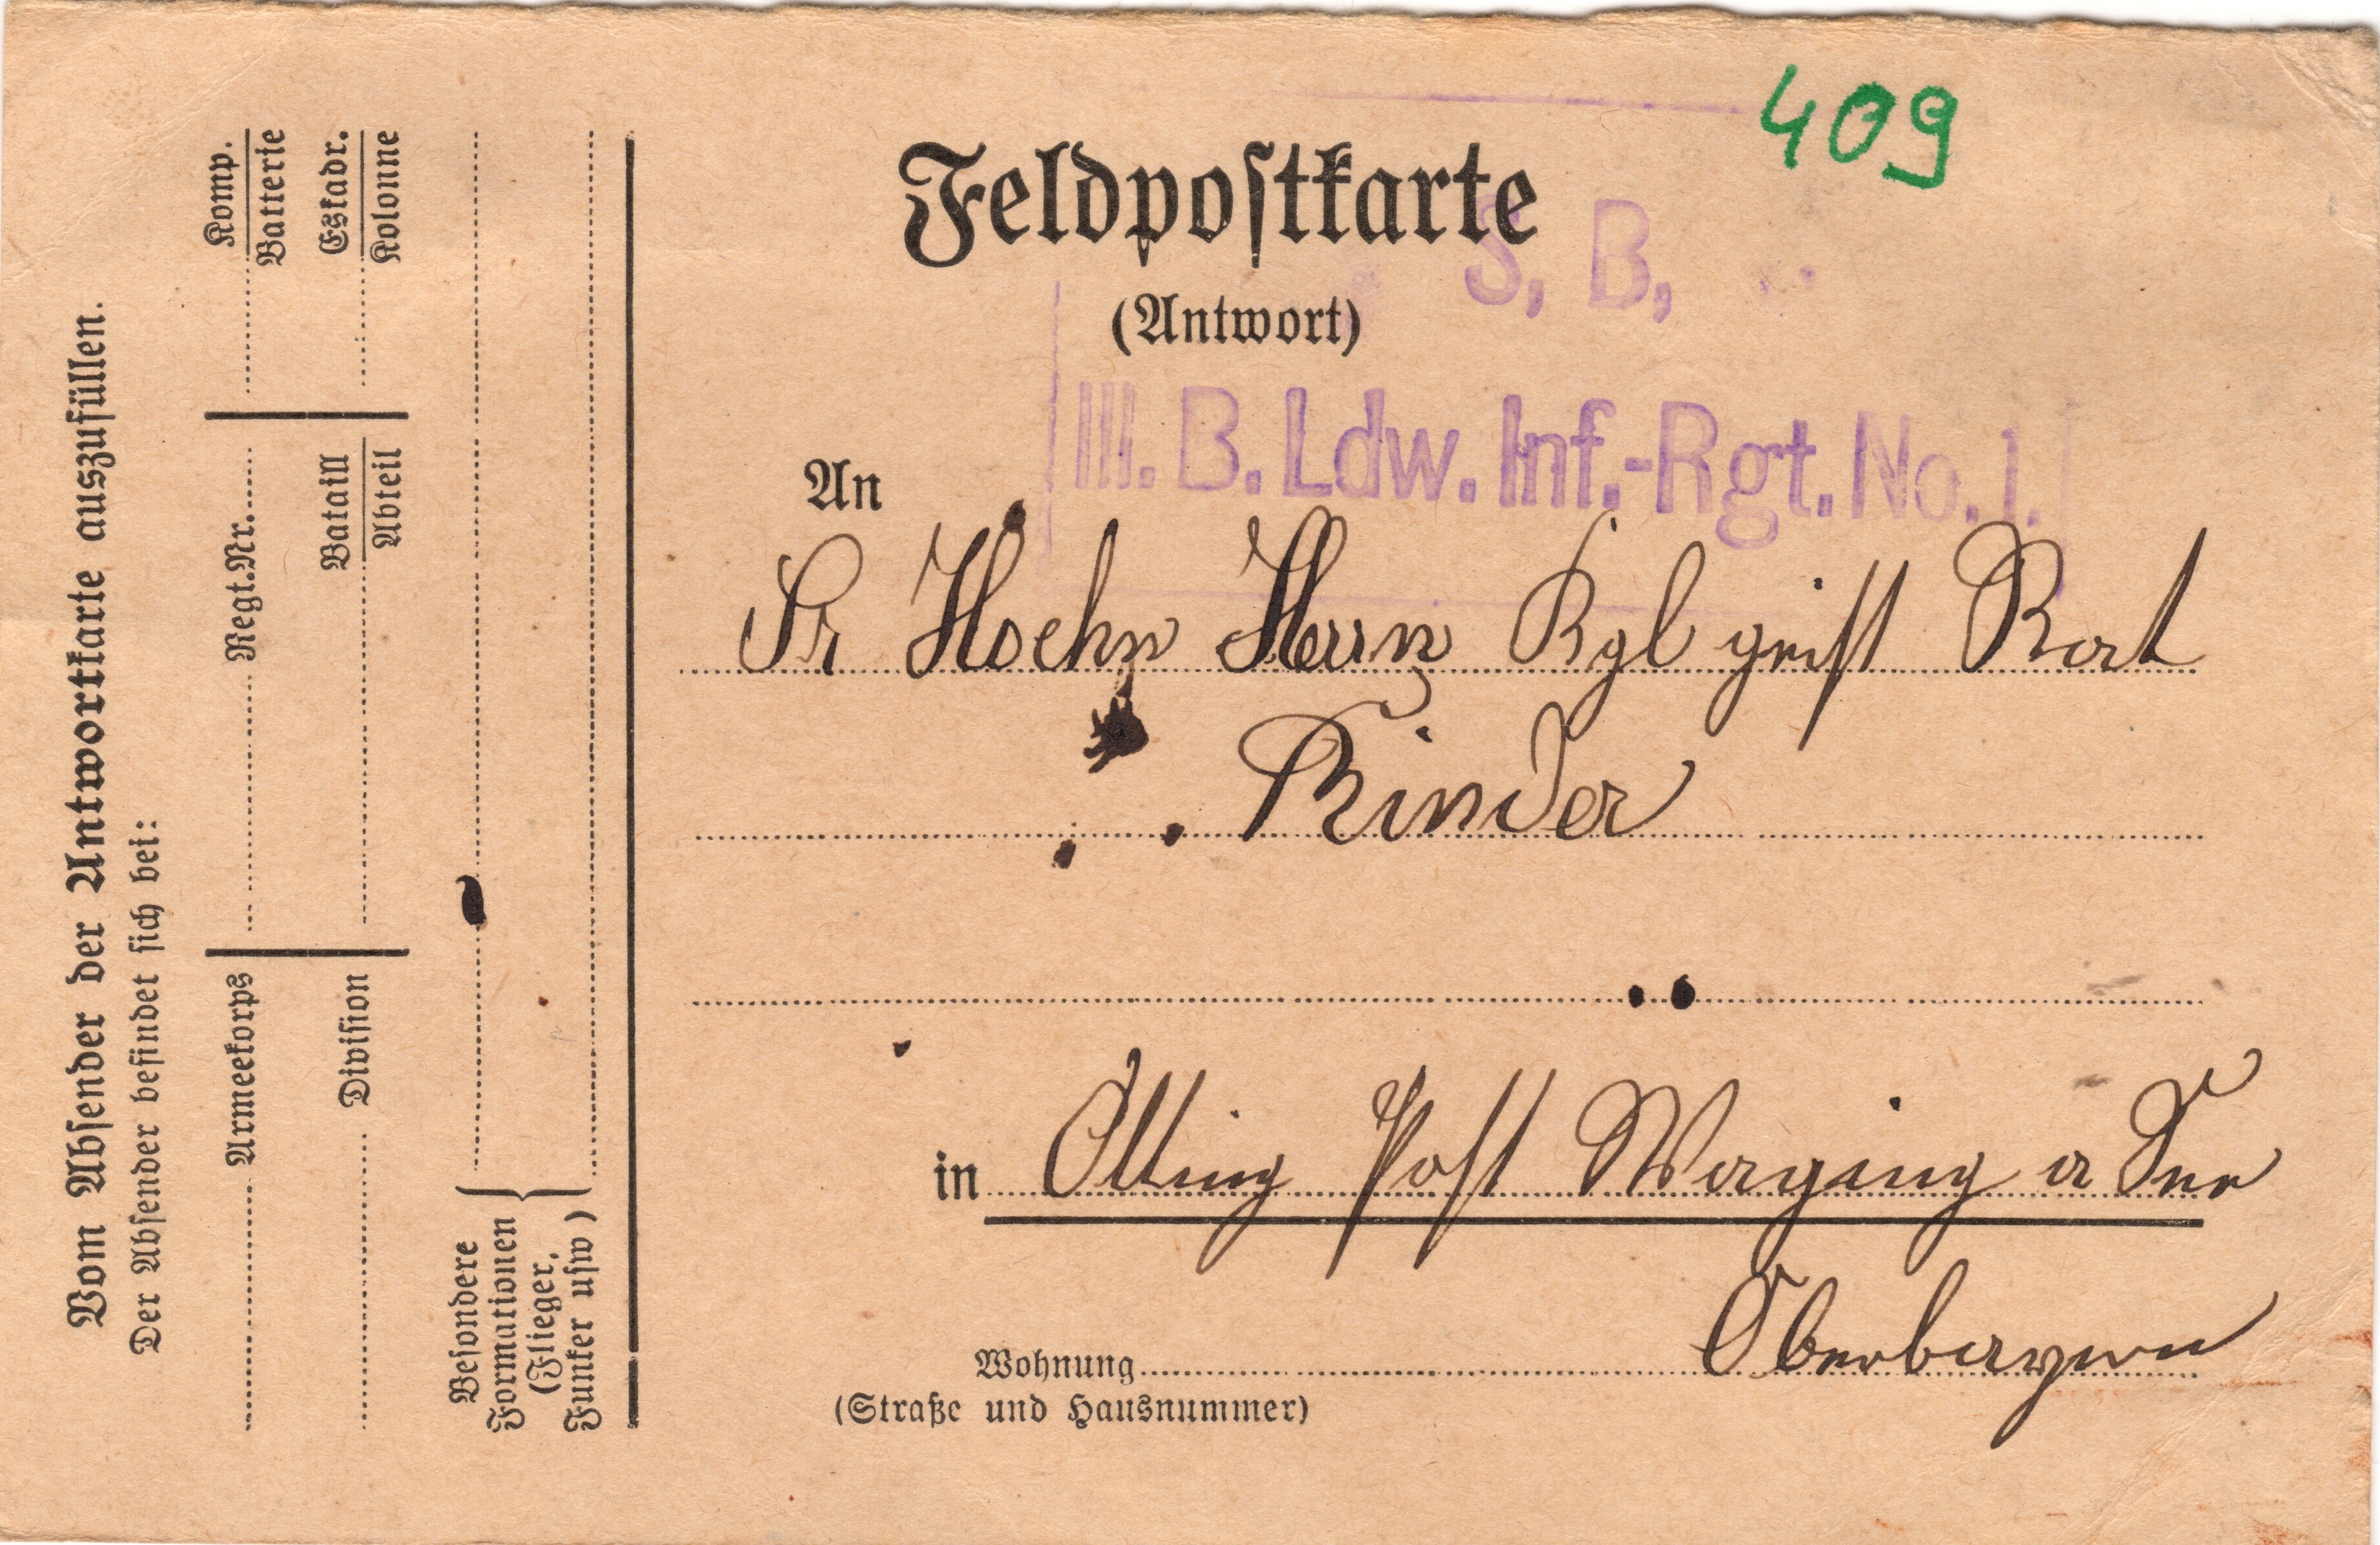 Vom Absender der Antwortkarte auszufüllen.
Der Absender befindet sich bei:
Armeekorps Regt.Nr. Komp.
Batterie
Division Bataill Eskadr.
Abteil Kolonne
Besondere
Formationen
(Flieger,
Funker usw)
409
Feldpostkarte
S. B.
(Antwort)
III. B. Ldw. Inf.-Rgt. No. 1.
An
Sr Hochw Herrn Kgl geistl Rat
Binder
in Otting Post Waging a See
Oberbayern
Wohnung
(Straße und Hausnummer)